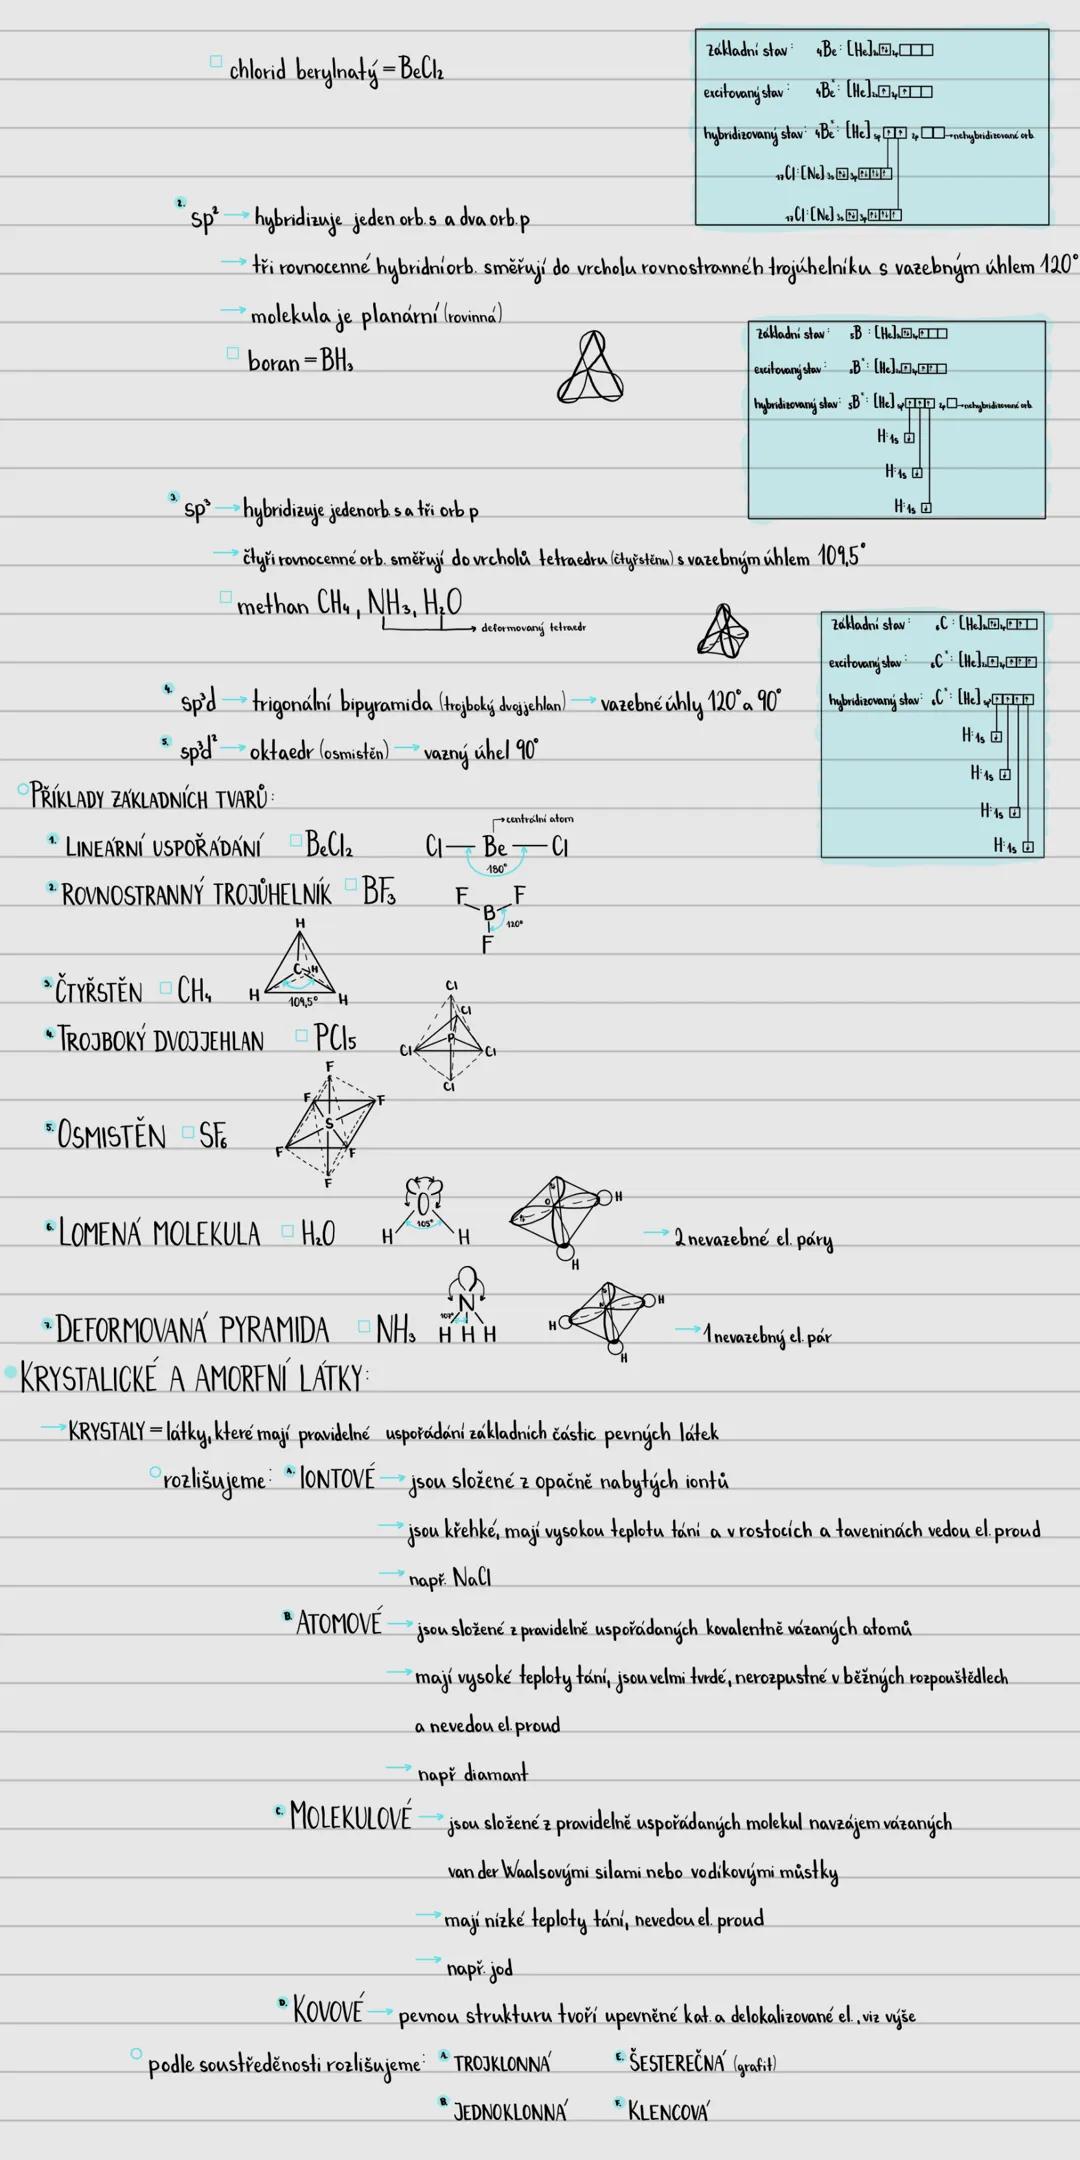 □ chlorid berylnatý = BeCl₂
základní stav: ₄Be: [He]₂ₛ[↑↓]₂ₚ[ ][ ][ ]
excitovaný stav: ₄Be*: [He]₂ₛ[↑]₂ₚ[↑][ ][ ]
hybridizovaný stav: ₄Be*: [He] sp[↑][↑] 2p[ ][ ]→nehybridizované orb.
₁₇Cl: [Ne] 3s[↑↓] 3p[↑↓][↑↓][↑]
₁₇Cl: [Ne] 3s[↑↓] 3p[↑↓][↑↓][↑]
2. sp² → hybridizuje jeden orb. s a dva orb. p
→ tři rovnocenné hybridní orb. směřují do vrcholu rovnostrannéh trojúhelníku s vazebným úhlem 120°
→ molekula je planární (rovinná)
□ boran = BH₃
základní stav: ₅B: [He]₂ₛ[↑↓]₂ₚ[↑][ ][ ]
excitovaný stav: ₅B*: [He]₂ₛ[↑]₂ₚ[↑][↑][ ]
hybridizovaný stav: ₅B*: [He] sp[↑][↑][↑] 2p[ ]→nehybridizované orb.
H: 1s[↓]
H: 1s[↓]
H: 1s[↓]
3. sp³ → hybridizuje jeden orb s a tři orb p
→ čtyři rovnocenné orb. směřují do vrcholů tetraedru (čtyřstěnu) s vazebným úhlem 109,5°
□ methan CH₄, NH₃, H₂O
→ deformovaný tetraedr
základní stav: ₆C: [He]₂ₛ[↑↓]₂ₚ[↑][↑][ ]
excitovaný stav: ₆C*: [He]₂ₛ[↑]₂ₚ[↑][↑][↑]
hybridizovaný stav: ₆C*: [He] sp[↑][↑][↑][↑]
H: 1s[↓]
H: 1s[↓]
H: 1s[↓]
H: 1s[↓]
4. sp³d → trigonální bipyramida (trojboký dvojjehlan) → vazebné úhly 120° a 90°
5. sp³d² → oktaedr (osmistěn) → vazný úhel 90°
PŘÍKLADY ZÁKLADNÍCH TVARŮ:
1. LINEÁRNÍ USPOŘÁDÁNÍ □ BeCl₂
→ centrální atom
Cl — Be — Cl
180°
2. ROVNOSTRANNÝ TROJŮHELNÍK □ BF₃
F F
B 120°
F
3. ČTYŘSTĚN □ CH₄
H
C H
H 109,5° H
4. TROJBOKÝ DVOJJEHLAN □ PCl₅
Cl
Cl
P
Cl Cl
Cl
5. OSMISTĚN □ SF₆
F
F F
S
F F
F
6. LOMENÁ MOLEKULA □ H₂O
O
105°
H H
O H
H
→ 2 nevazebné el. páry
7. DEFORMOVANÁ PYRAMIDA □ NH₃
N
107°
H H H
N H
H
H
→ 1 nevazebný el. pár
KRYSTALICKÉ A AMORFNÍ LÁTKY:
→ KRYSTALY = látky, které mají pravidelné uspořádání základních částic pevných látek
rozlišujeme: A. IONTOVÉ → jsou složené z opačně nabytých iontů
→ jsou křehké, mají vysokou teplotu tání a v rostocích a taveninách vedou el. proud
→ např. NaCl
B. ATOMOVÉ → jsou složené z pravidelně uspořádaných kovalentně vázaných atomů
→ mají vysoké teploty tání, jsou velmi tvrdé, nerozpustné v běžných rozpouštědlech
a nevedou el. proud
→ např diamant
C. MOLEKULOVÉ → jsou složené z pravidelně uspořádaných molekul navzájem vázaných
van der Waalsovými silami nebo vodíkovými můstky
→ mají nízké teploty tání, nevedou el. proud
→ např. jod
D. KOVOVÉ → pevnou strukturu tvoří upevněné kat. a delokalizované el., viz výše
podle soustředěnosti rozlišujeme: A. TROJKLONNÁ E. ŠESTEREČNÁ (grafit)
B. JEDNOKLONNÁ F. KLENCOVÁ